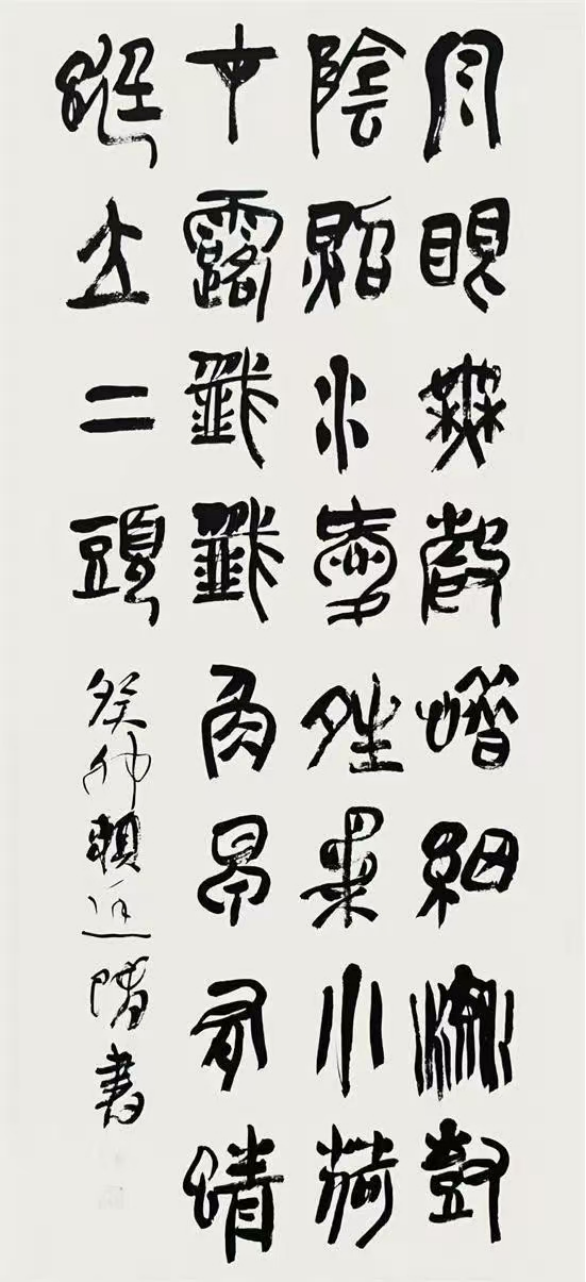 泉眼無聲惜細流樹
陰照水愛晴柔小荷
才露尖尖角早有蜻
蜓立上頭
癸卯書